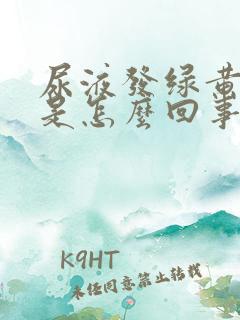 尿液發绿黄
是怎麼回事
K9HT
未经同意禁止转载